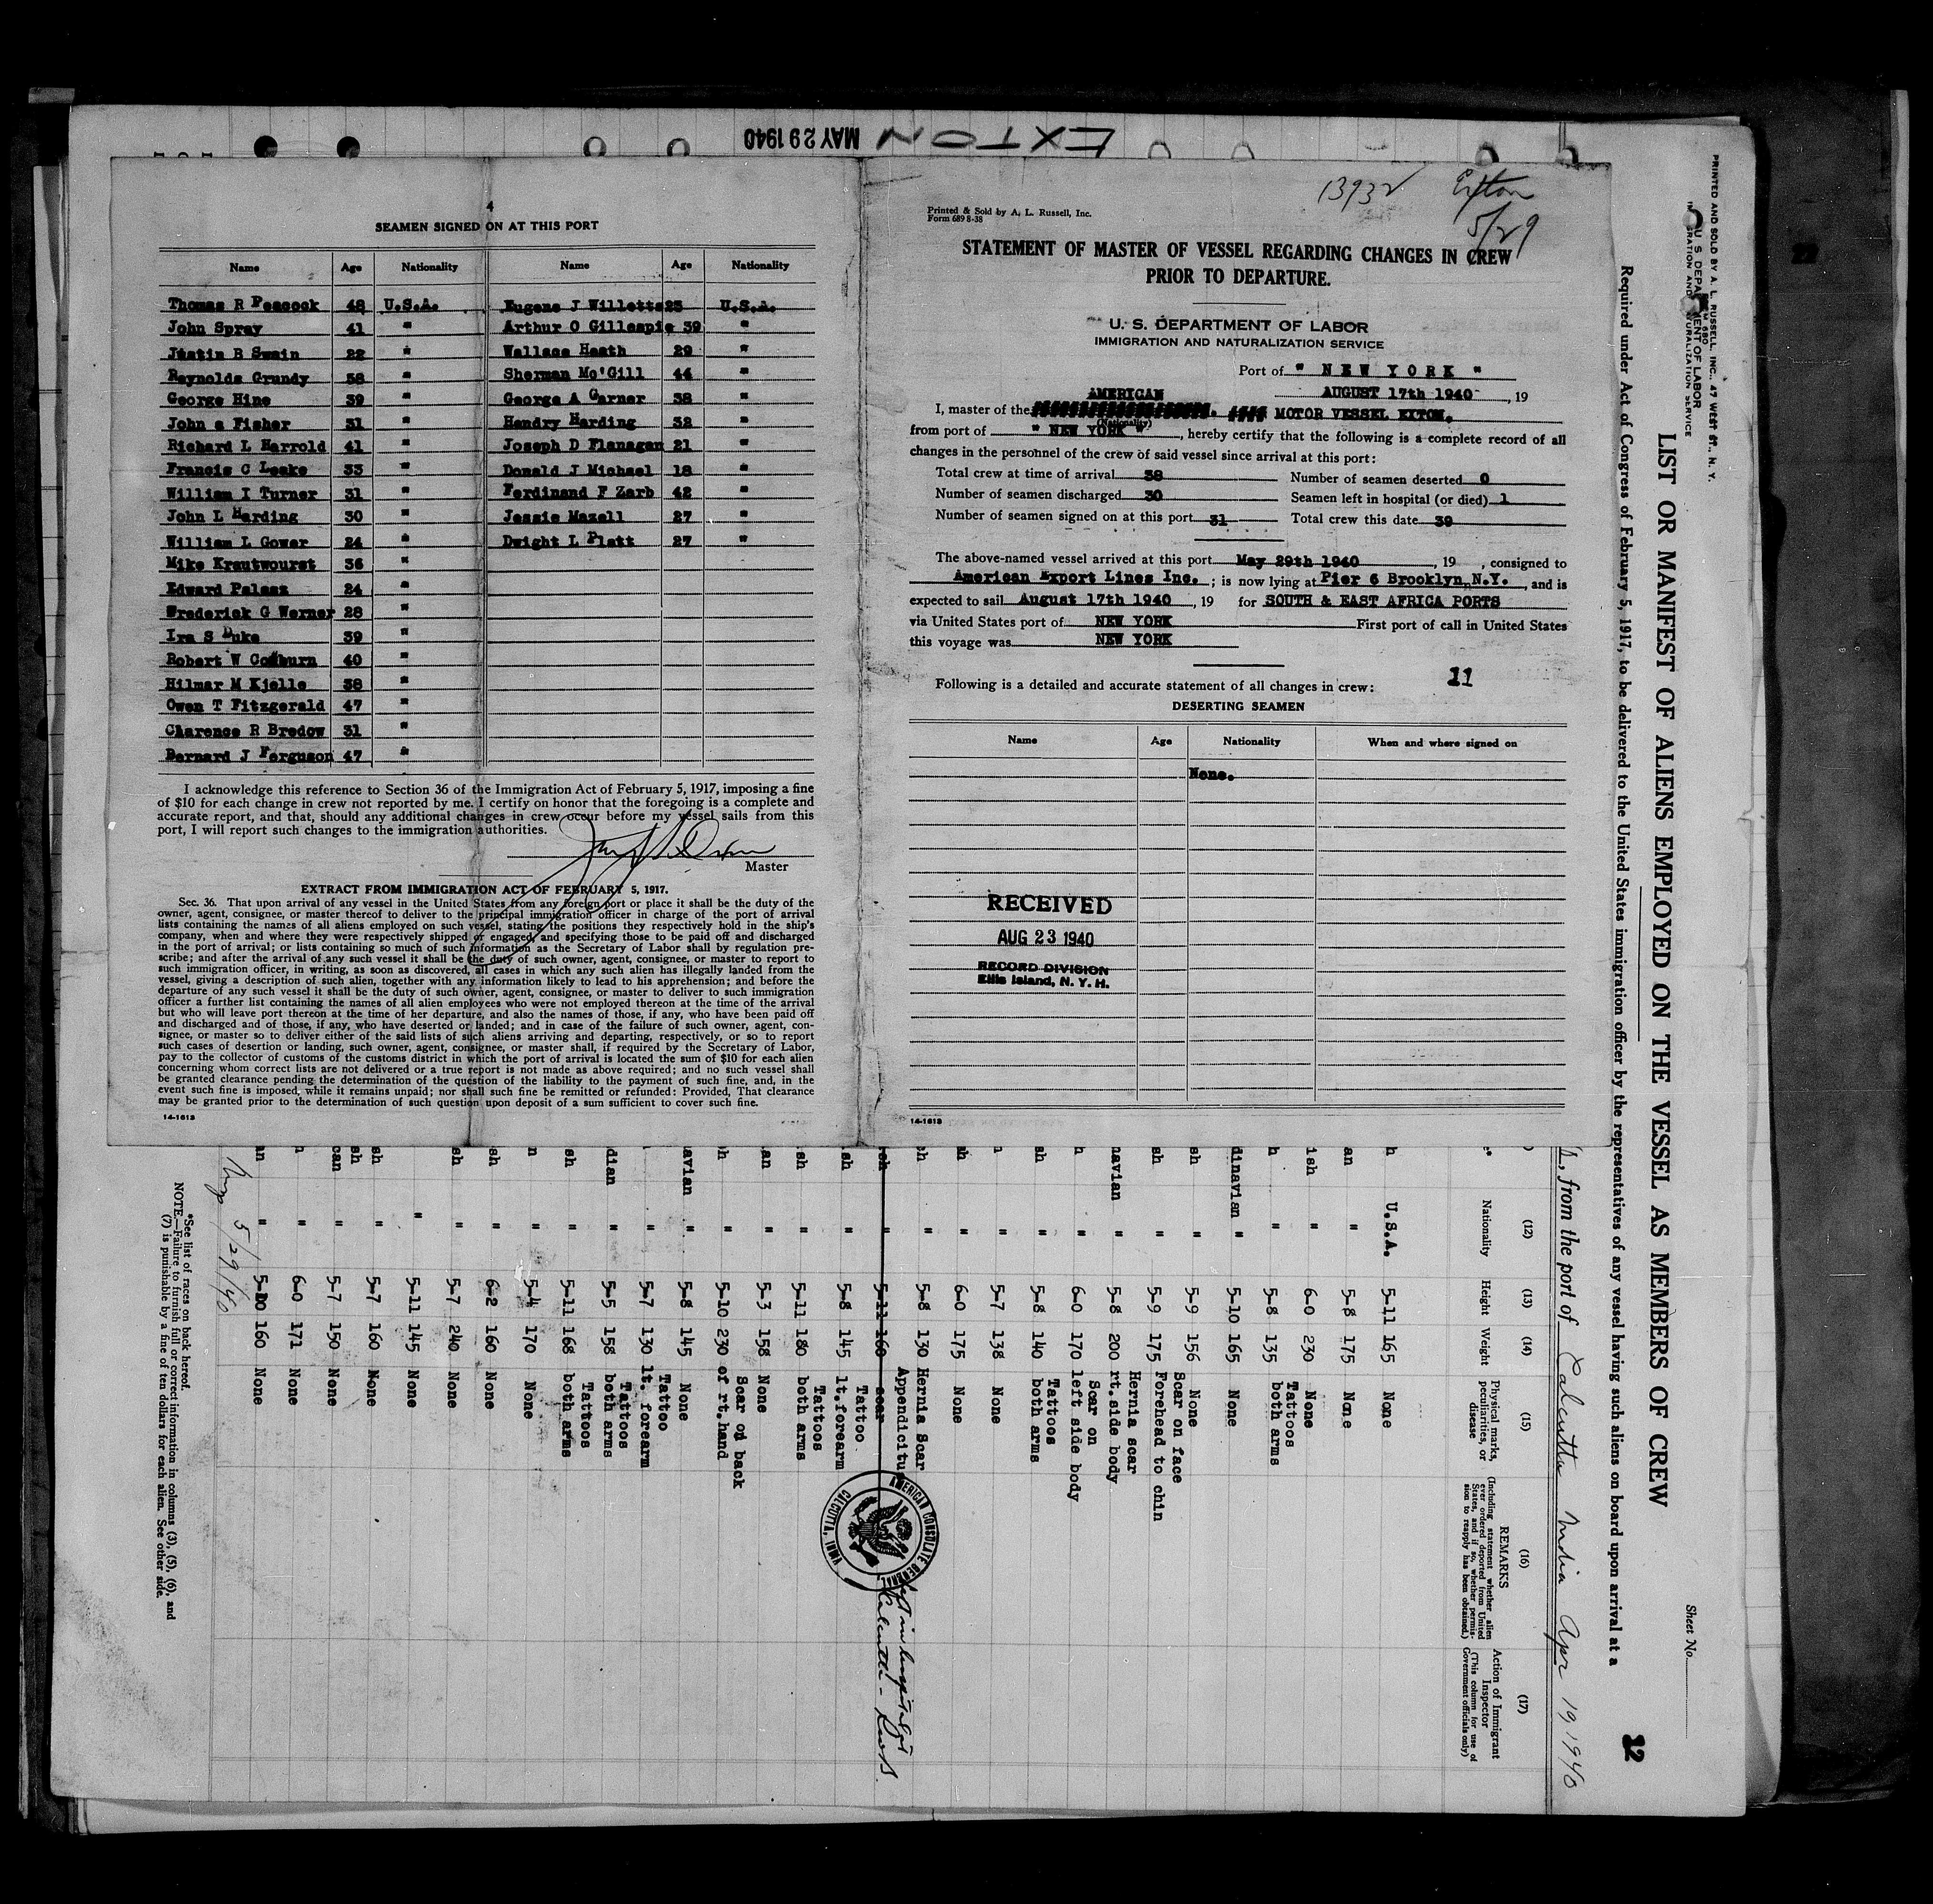 EXTON MAY 29 1940
4
SEAMEN SIGNED ON AT THIS PORT
Name Age Nationality Name Age Nationality
Thomas R Peacock 48 U.S.A. Eugene J Willetts 23 U.S.A.
John Spray 41 " Arthur O Gillespie 39 "
Justin B Swain 22 " Wallace Heath 29 "
Reynolds Grundy 38 " Sherman Mc'Gill 44 "
George Hine 39 " George A Garner 38 "
John a Fisher 31 " Hendry Harding 32 "
Richard L Harrold 41 " Joseph D Flanagan 21 "
Francis C Leake 33 " Donald J Michael 18 "
William I Turner 31 " Ferdinand F Zarb 42 "
John L Harding 30 " Jessie Mazell 27 "
William L Gower 24 " Dwight L Platt 27 "
Mike Krautwourst 36 "
Edward Palasz 24 "
Frederick G Werner 28 "
Ira S Duke 39 "
Robert W Coburn 40 "
Hilmar M Kjelle 38 "
Owen T Fitzgerald 47 "
Clarence R Bredow 31 "
Bernard J Ferguson 47 "
I acknowledge this reference to Section 36 of the Immigration Act of February 5, 1917, imposing a fine
of $10 for each change in crew not reported by me. I certify on honor that the foregoing is a complete and
accurate report, and that, should any additional changes in crew occur before my vessel sails from this
port, I will report such changes to the immigration authorities.
Master
EXTRACT FROM IMMIGRATION ACT OF FEBRUARY 5, 1917.
Sec. 36. That upon arrival of any vessel in the United States from any foreign port or place it shall be the duty of the
owner, agent, consignee, or master thereof to deliver to the principal immigration officer in charge of the port of arrival
lists containing the names of all aliens employed on such vessel, stating the positions they respectively hold in the ship's
company, when and where they were respectively shipped or engaged, and specifying those to be paid off and discharged
in the port of arrival; or lists containing so much of such information as the Secretary of Labor shall by regulation pre-
scribe; and after the arrival of any such vessel it shall be the duty of such owner, agent, consignee, or master to report to
such immigration officer, in writing, as soon as discovered, all cases in which any such alien has illegally landed from the
vessel, giving a description of such alien, together with any information likely to lead to his apprehension; and before the
departure of any such vessel it shall be the duty of such owner, agent, consignee, or master to deliver to such immigration
officer a further list containing the names of all alien employees who were not employed thereon at the time of the arrival
but who will leave port thereon at the time of her departure, and also the names of those, if any, who have been paid off
and discharged and of those, if any, who have deserted or landed; and in case of the failure of such owner, agent, con-
signee, or master so to deliver either of the said lists of such aliens arriving and departing, respectively, or so to report
such cases of desertion or landing, such owner, agent, consignee, or master shall, if required by the Secretary of Labor,
pay to the collector of customs of the customs district in which the port of arrival is located the sum of $10 for each alien
concerning whom correct lists are not delivered or a true report is not made as above required; and no such vessel shall
be granted clearance pending the determination of the question of the liability to the payment of such fine, and, in the
event such fine is imposed, while it remains unpaid; nor shall such fine be remitted or refunded: Provided, That clearance
may be granted prior to the determination of such question upon deposit of a sum sufficient to cover such fine.
14-1613
13932 Exton
5/29
Printed & Sold by A. L. Russell, Inc.
Form 689 8-38
STATEMENT OF MASTER OF VESSEL REGARDING CHANGES IN CREW
PRIOR TO DEPARTURE.
U. S. DEPARTMENT OF LABOR
IMMIGRATION AND NATURALIZATION SERVICE
Port of " NEW YORK "
AMERICAN AUGUST 17th 1940 , 19
I, master of the MOTOR VESSEL EXTON.
(Nationality)
from port of " NEW YORK " , hereby certify that the following is a complete record of all
changes in the personnel of the crew of said vessel since arrival at this port:
Total crew at time of arrival 38 Number of seamen deserted 0
Number of seamen discharged 30 Seamen left in hospital (or died) 1
Number of seamen signed on at this port 31 Total crew this date 39
The above-named vessel arrived at this port May 29th 1940 , 19 , consigned to
American Export Lines Inc. ; is now lying at Pier 6 Brooklyn, N.Y. and is
expected to sail August 17th 1940 , 19 for SOUTH & EAST AFRICA PORTS
via United States port of NEW YORK First port of call in United States
this voyage was NEW YORK
11
Following is a detailed and accurate statement of all changes in crew:
DESERTING SEAMEN
Name Age Nationality When and where signed on
None.
RECEIVED
AUG 23 1940
RECORD DIVISION
Ellis Island, N. Y. H.
14-1613
PRINTED AND SOLD BY A. L. RUSSELL, INC., 47 WEST ST., N. Y.
U. S. DEPARTMENT OF LABOR
Sheet No.
LIST OR MANIFEST OF ALIENS EMPLOYED ON THE VESSEL AS MEMBERS OF CREW
12
Required under Act of Congress of February 5, 1917, to be delivered to the United States immigration officer by the representatives of any vessel having such aliens on board upon arrival at a
from the port of Calcutta India Apr 19 1940
(12) (13) (14) (15) (16) (17)
Nationality Height Weight Physical marks, peculiarities, or disease
REMARKS
(Including statement whether alien ever ordered deported from United States, and if so, whether permission to reapply has been obtained.)
Action of Immigrant Inspector
(This column for use of Government officials only)
h U.S.A. 5-11 165 None
an " 5-8 175 None
ish " 6-0 230 None
h " 5-8 135 Tattoos both arms
dinavian " 5-10 165 None
sh " 5-9 156 None
sh " 5-9 175 Scar on face Forehead to chin
navian " 5-8 200 Hernia scar rt.side body
h " 6-0 170 Scar on left side body
sh " 5-8 140 Tattoos both arms
" 5-7 138 None
sh " 6-0 175 None
sh " 5-8 130 Hernia Scar
" 5-11 160 Appendicitus scar
left in hospital at Calcutta
sh " 5-8 145 Tattoo lt.forearm
sh " 5-11 180 Tattoos both arms
an " 5-3 158 None
h " 5-10 230 Scar on back of rt.hand
avian " 5-8 145 None
" 5-7 130 Tattoo lt. forearm
dian " 5-5 158 Tattoos both arms
sh " 5-11 168 Tattoos both arms
n " 5-4 170 None
sh " 6-2 160 None
sh " 5-7 240 None
" 5-11 145 None
sh " 5-7 160 None
can " 5-7 150 None
" 6-0 171 None
an " 5-10 160 None
AMERICAN CONSULATE GENERAL
CALCUTTA, INDIA
5/29/40
*See list of races on back hereof.
NOTE.—Failure to furnish full or correct information in columns (3), (5), (6), and
(7) is punishable by a fine of ten dollars for each alien. See other side.